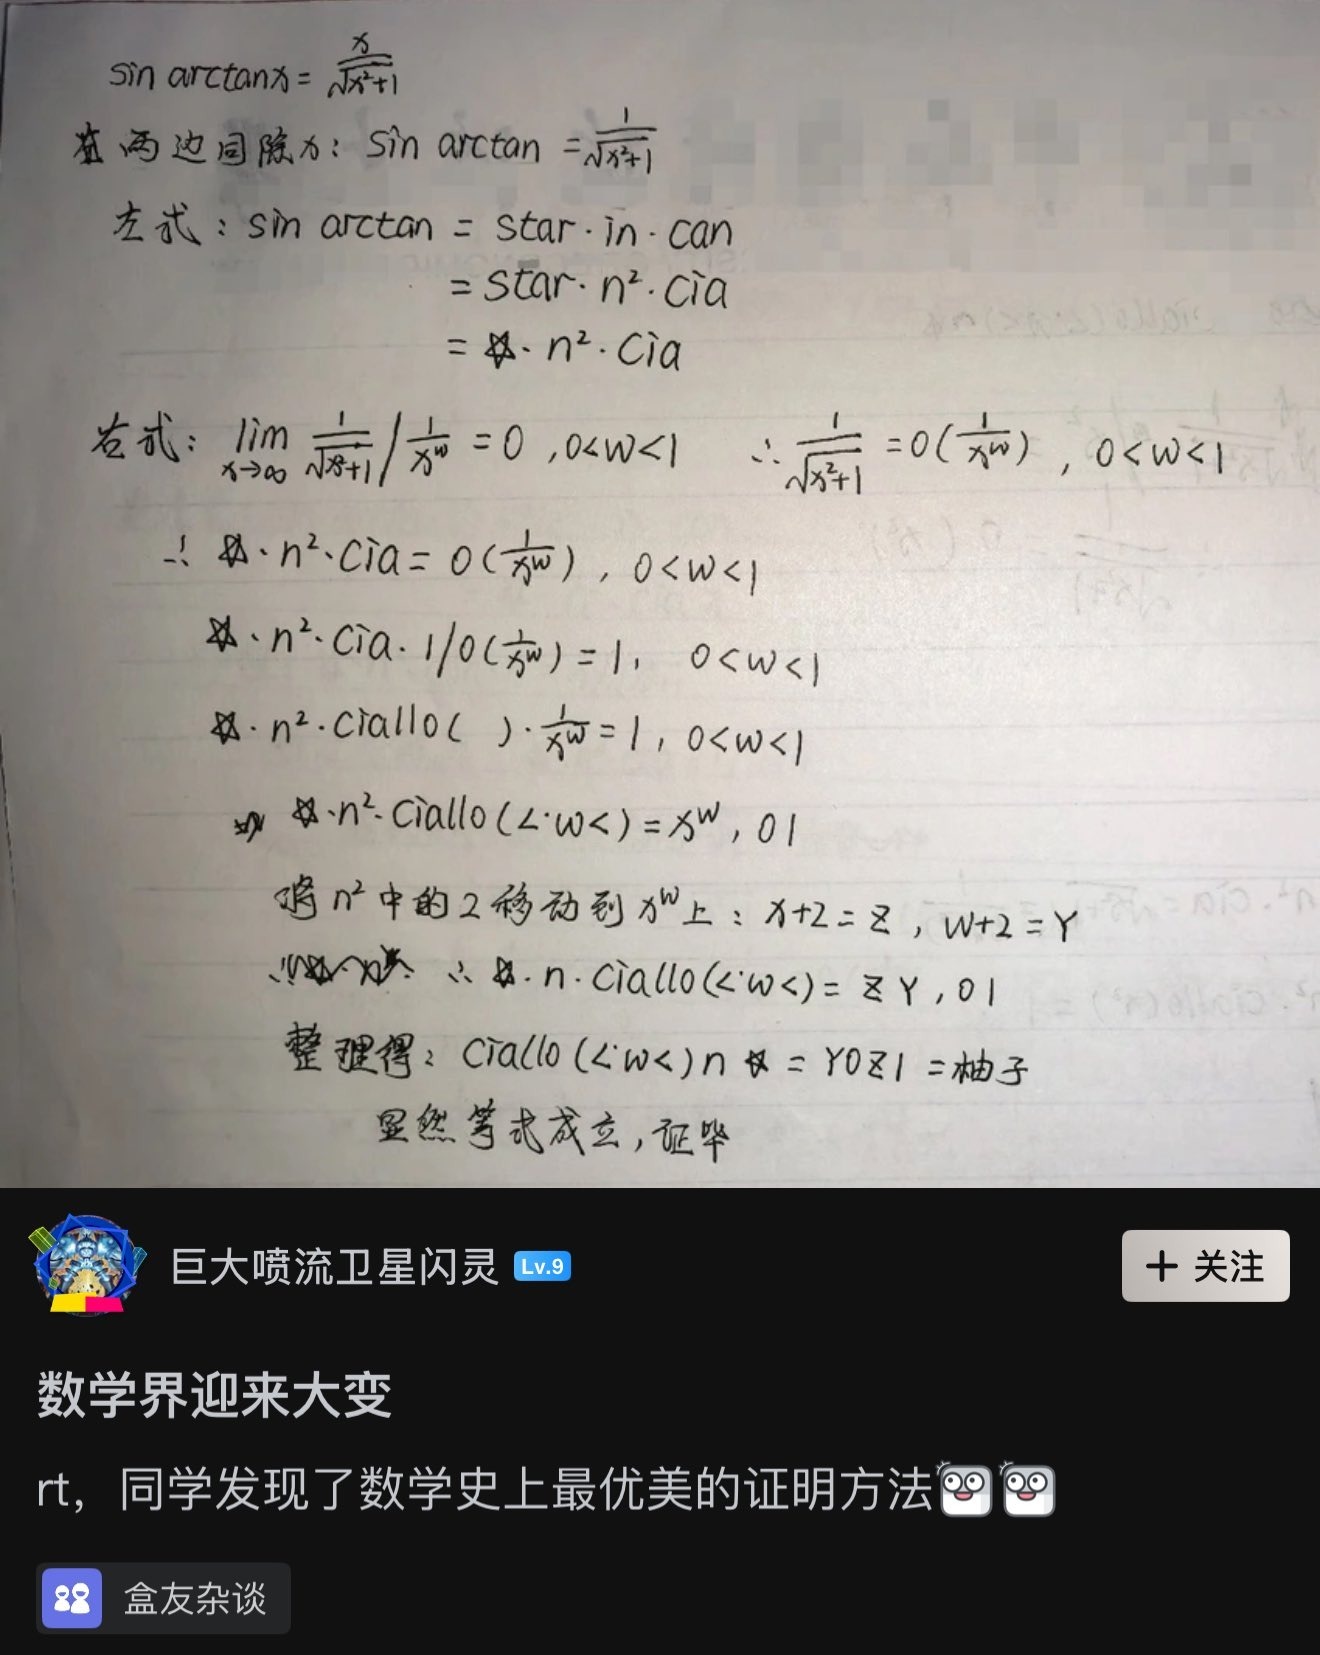 sin arctanx = x/√x²+1
两边同除x: sin arctan = 1/√x²+1
左式: sin arctan = star·in·can
= star·n²·cia
= ☆·n²·cia
右式: lim x→∞ 1/√x²+1 / 1/x^w = 0, 0<w<1 ∴ 1/√x²+1 = o(1/x^w), 0<w<1
∴ ☆·n²·cia = o(1/x^w), 0<w<1
☆·n²·cia·1/o(1/x^w) = 1, 0<w<1
☆·n²·ciallo( )·1/x^w = 1, 0<w<1
☆·n²·ciallo(∠·w<) = x^w, 01
将n²中的2移动到x^w上: x+2=Z, w+2=Y
∴ ☆·n·ciallo(∠·w<) = ZY, 01
整理得: ciallo(∠·w<)n☆ = YOZI = 柚子
显然等式成立,证毕
巨大喷流卫星闪灵 Lv.9
+ 关注
数学界迎来大变
rt，同学发现了数学史上最优美的证明方法
盒友杂谈